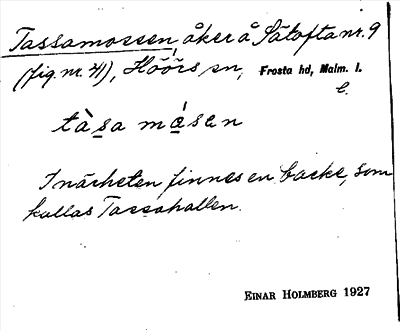 Tassamossen, åker å Sätofta nr. 9
(fig. nr. 41), Höörs sn, Frosta hd, Malm. l.
C.
tàsa mǿsen
I närheten finnes en backe, som
kallas Tassahallen.
EINAR HOLMBERG 1927